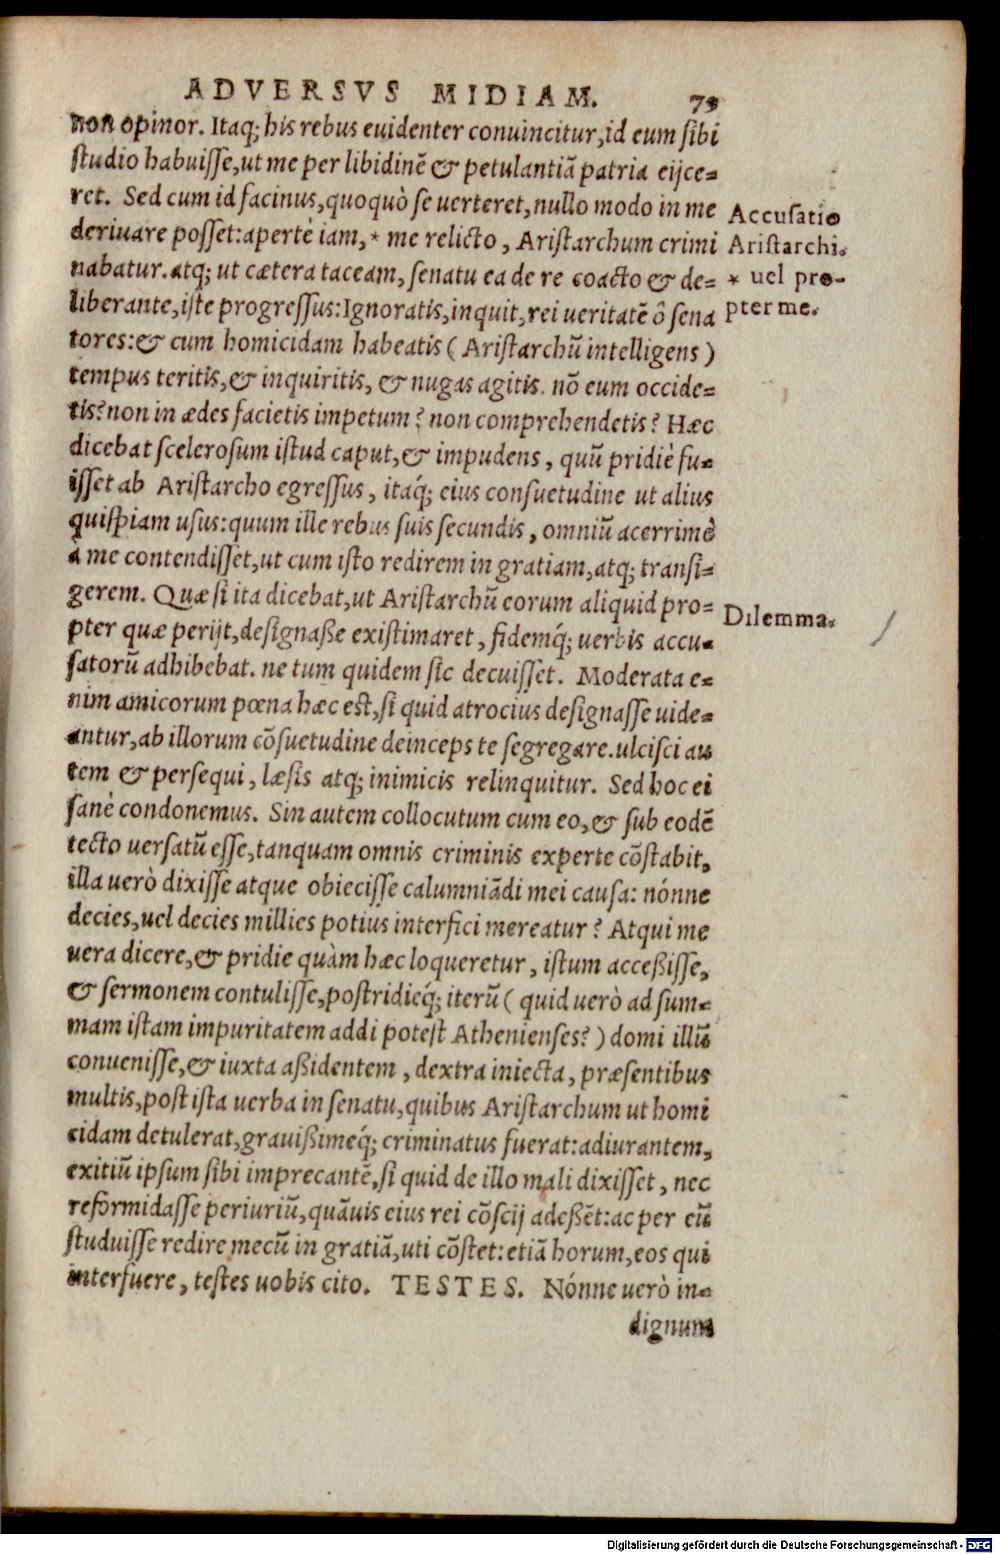 ADVERSVS MIDIAM. 79
non opinor. Itaq; his rebus euidenter conuincitur, id eum sibi
studio habuisse, ut me per libidinē & petulantiā patria eijce-
ret. Sed cum id facinus, quoquò se uerteret, nullo modo in me
deriuare posset: apertè iam, * me relicto, Aristarchum crimi
nabatur. atq; ut cætera taceam, senatu ea de re coacto & de-
liberante, iste progressus: Ignoratis, inquit, rei ueritatē ô sena
tores: & cum homicidam habeatis (Aristarchū intelligens)
tempus teritis, & inquiritis, & nugas agitis. nō eum occide-
tis? non in ædes facietis impetum? non comprehendetis? Hæc
dicebat scelerosum istud caput, & impudens, quū pridiè fu-
isset ab Aristarcho egressus, itaq́; eius consuetudine ut alius
quispiam usus: quum ille rebus suis secundis, omniū acerrimè
à me contendisset, ut cum isto redirem in gratiam, atq; transi-
gerem. Quæ si ita dicebat, ut Aristarchū eorum aliquid pro-
pter quæ perijt, designaße existimaret, fidemq́; uerbis accu-
satorū adhibebat. ne tum quidem sic decuisset. Moderata e-
nim amicorum pœna hæc est, si quid atrocius designasse uide-
antur, ab illorum cōsuetudine deinceps te segregare. ulcisci au
tem & persequi, læsis atq; inimicis relinquitur. Sed hoc ei
sanè condonemus. Sin autem collocutum cum eo, & sub eodē
tecto uersatū esse, tanquam omnis criminis experte cōstabit,
illa uerò dixisse atque obiecisse calumniādi mei causa: nónne
decies, uel decies millies potius interfici mereatur? Atqui me
uera dicere, & pridie quàm hæc loqueretur, istum acceßisse,
& sermonem contulisse, postridieq́; iterū (quid uerò ad sum-
mam istam impuritatem addi potest Athenienses?) domi illū
conuenisse, & iuxta aßidentem, dextra iniecta, præsentibus
multis, post ista uerba in senatu, quibus Aristarchum ut homi
cidam detulerat, grauißimeq́; criminatus fuerat: adiurantem,
exitiū ipsum sibi imprecantē, si quid de illo mali dixisset, nec
reformidasse periuriū, quāuis eius rei cōscij adeßēt: ac per eū
studuisse redire mecū in gratiā, uti cōstet: etiā horum, eos qui
interfuere, testes uobis cito. TESTES. Nónne uerò in-
dignum
Accusatio
Aristarchi.
* uel pro-
pter me.
Dilemma.
Digitalisierung gefördert durch die Deutsche Forschungsgemeinschaft - DFG